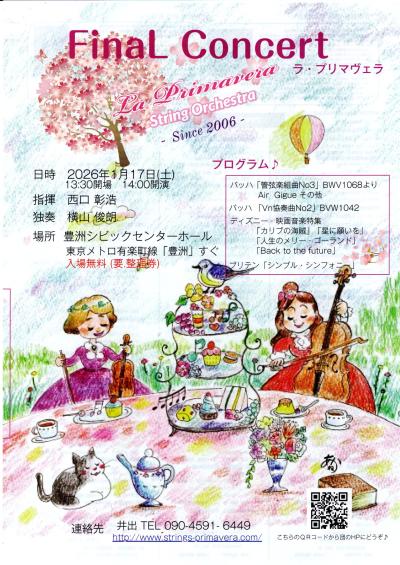 FinaL Concert
La Primavera
ラ・プリマヴェラ
String Orchestra
- Since 2006 -
プログラム♪
日時 2026年1月17日(土)
13:30開場 14:00開演
指揮 西口 彰浩
独奏 横山 俊朗
場所 豊洲シビックセンターホール
東京メトロ有楽町線「豊洲」すぐ
入場無料 (要,整理券)
バッハ「管弦楽組曲No3」BWV1068より
Air, Gigue その他
バッハ 「Vn協奏曲No2」BVW1042
ディズニー・映画音楽特集
「カリブの海賊」「星に願いを」
「人生のメリーゴーランド」
「Back to the future」
ブリテン「シンプル・シンフォニー」
連絡先 井出 TEL 090-4591-6449
http://www.strings-primavera.com/
こちらのQRコードから団のHPにどうぞ♪